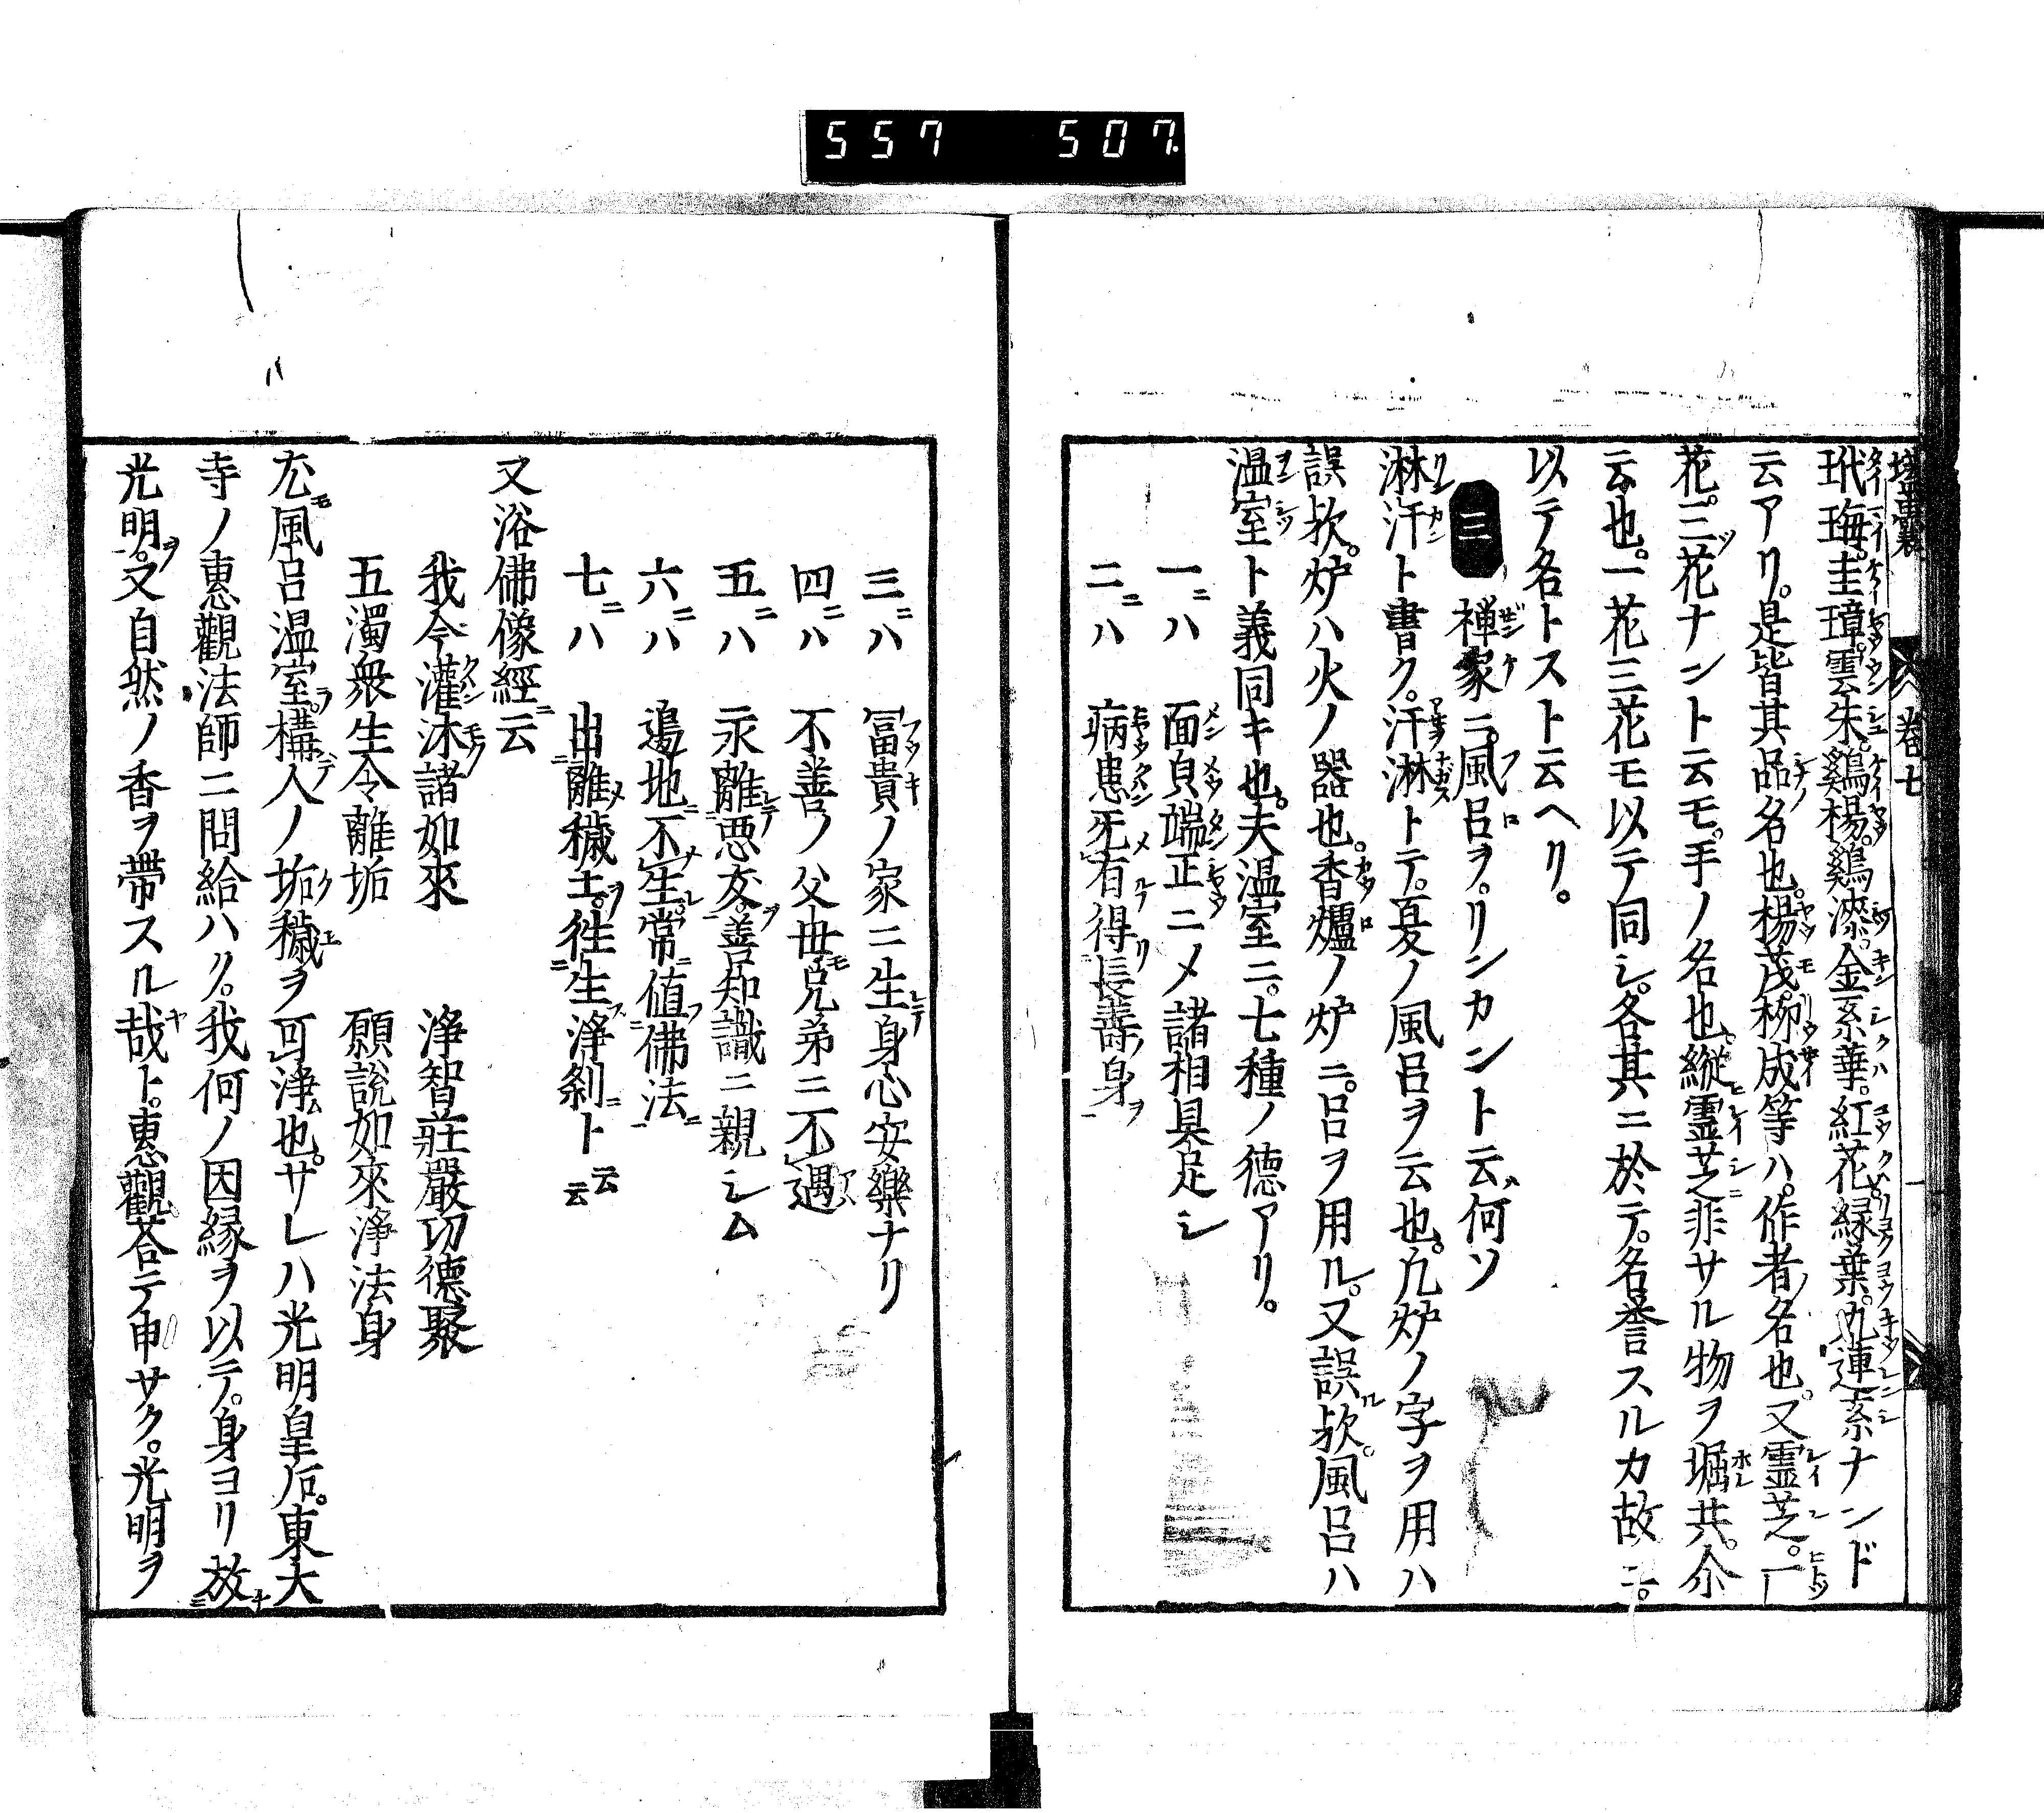 557 507
壒囊 巻七
玳瑇。圭璋。雲朱。鷄楊。鷄漆。金系華。紅花緑葉。九連系ナンド
云アリ。是皆其品名也。楊茂栁成等ハ。作者ノ名也。又霊芝。一
花。三花ナントト云モ。手ノ名也。縦霊芝ニ非サル物ヲ堀共。尒
云也。一花三花モ以テ同シ。各其ニ於テ。名誉スルカ故ニ。
以テ名トストト云ヘリ。
三 禅家ニ。風呂ヲ。リンカント云ハ何ソ
淋汗ト書ク。汗淋トテ。夏ノ風呂ヲ云也。凡炉ノ字ヲ用ハ
誤欤。炉ハ火ノ器也。香爐ノ炉ニ。呂ヲ用ル。又誤欤。風呂ハ
温室ト義同キ也。夫温室ニ。七種ノ徳アリ。
一ニハ 面皃端正ニメ諸相具足シ
二ニハ 病患死有得長壽身
三ニハ 冨貴ノ家ニ生身心安樂ナリ
四ニハ 不善ノ父母兄弟ニ不遇
五ニハ 永離悪友。善知識ニ親シム
六ニハ 邊地不生。常値佛法
七ニハ 出離穢土。徃生浄刹ト云云
又浴佛像經云
我今灌沐諸如來 浄智莊嚴功德聚
五濁衆生令離垢 願説如來浄法身
尤風呂温室構。人ノ垢穢ヲ可浄也。サレハ光明皇后。東大
寺ノ恵觀法師ニ問給ハク。我何ノ因縁ヲ以テ。身ヨリ放
光明。又自然ノ香ヲ帶スル哉ト。恵觀荅テ申サク。光明ヲ